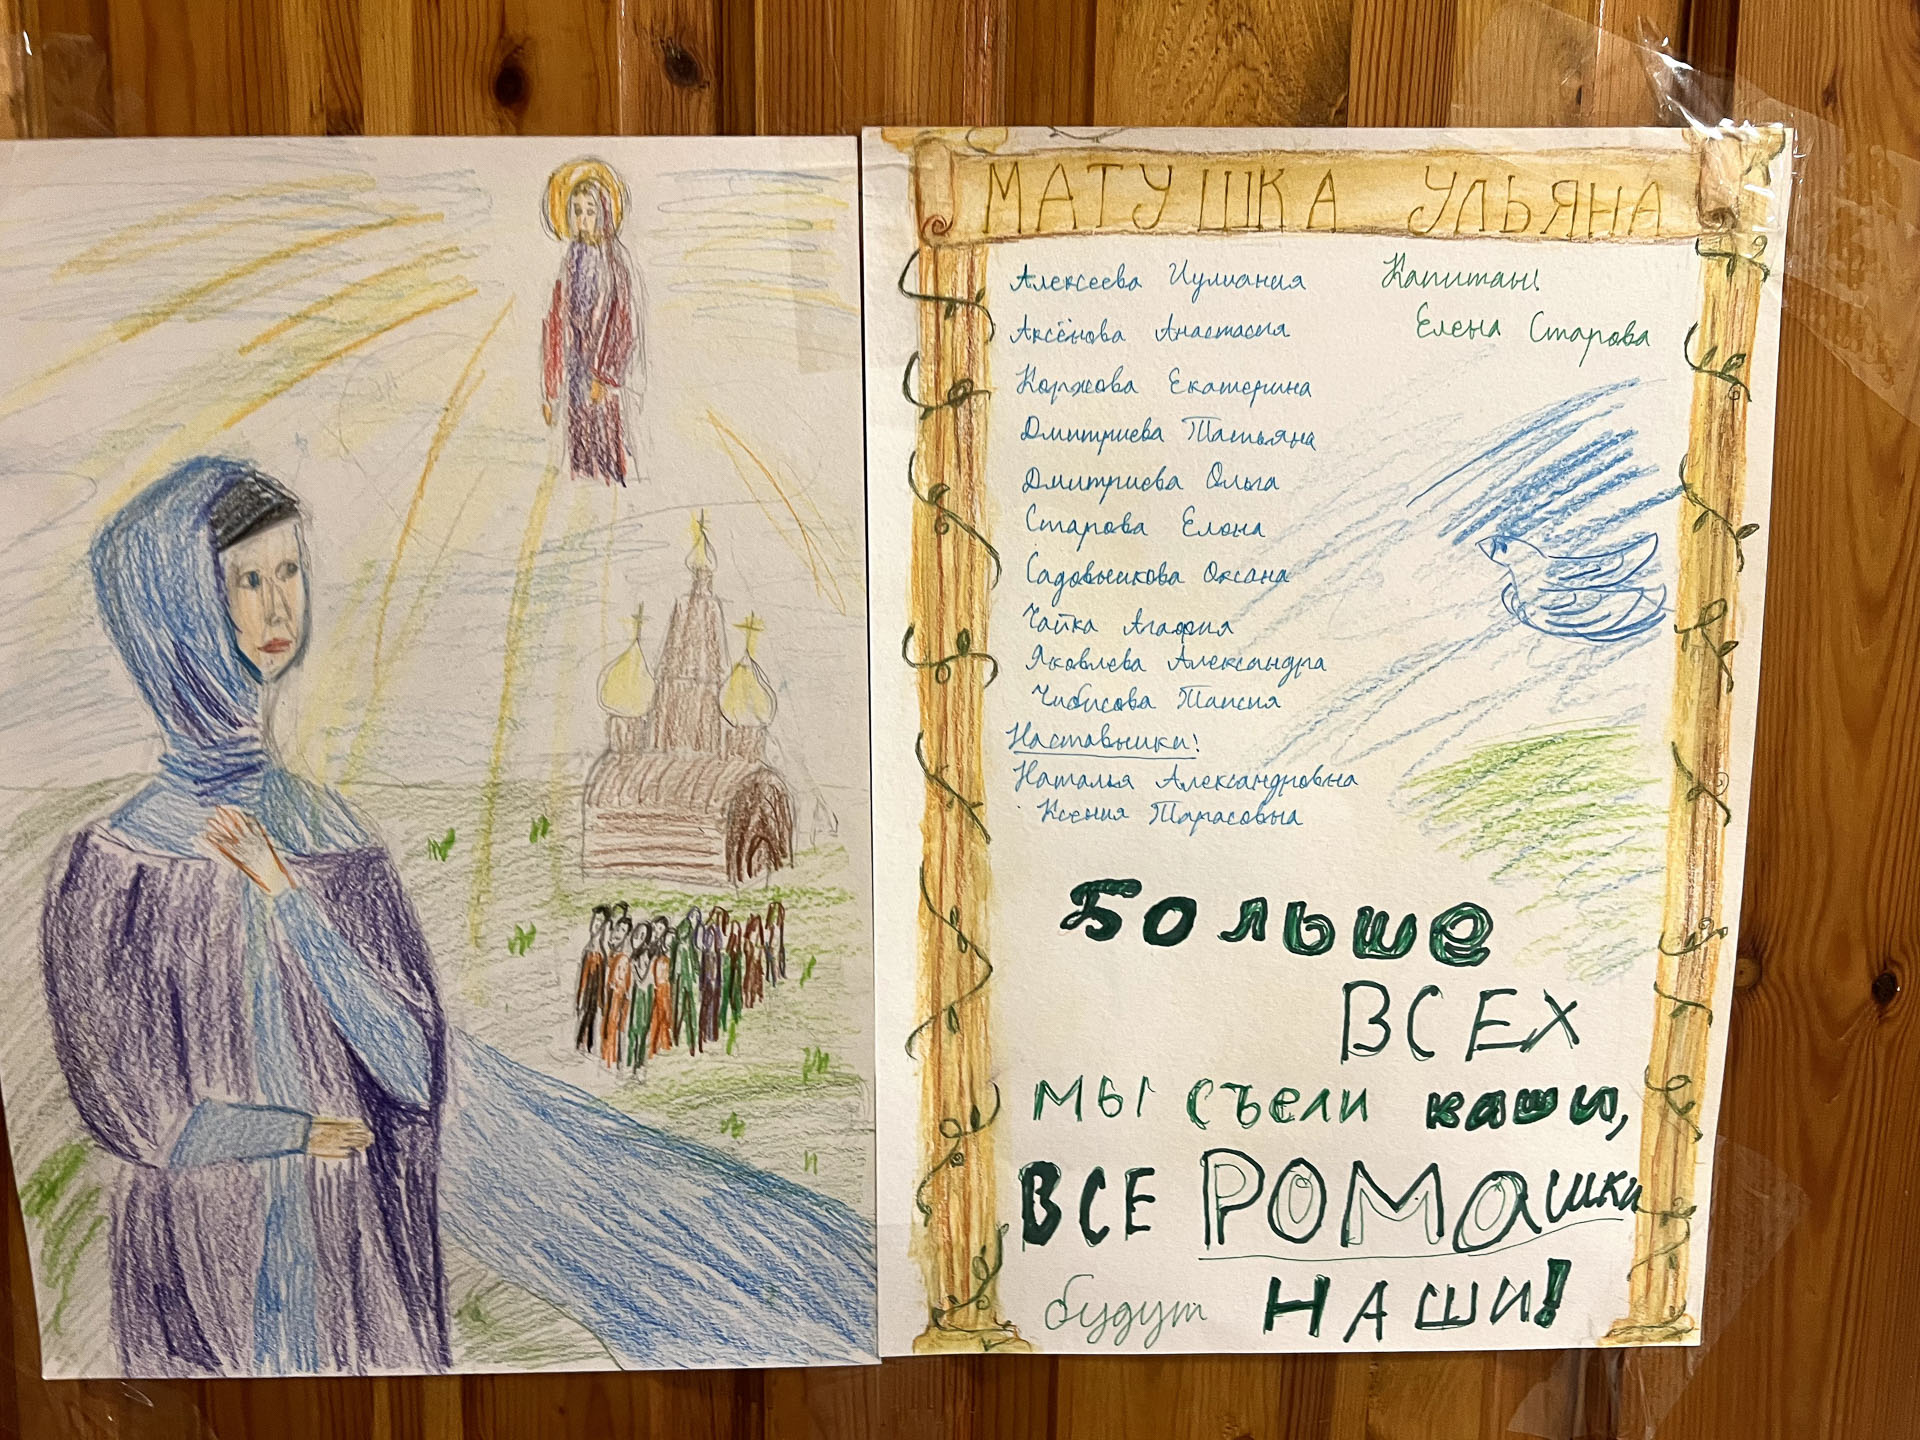 МАТУШКА УЛЬЯНА
Алексеева Иулиания
Аксёнова Анастасия
Коржова Екатерина
Дмитриева Татьяна
Дмитриева Ольга
Старова Елена
Садовникова Оксана
Чайка Агафия
Яковлева Александра
Чибисова Таисия
Наставники!
Наталья Александровна
Ксения Тарасовна
Капитан!
Елена Старова
Больше
ВСЕХ
МЫ СЪЕЛИ каши,
ВСЕ РОМАШКИ
будут НАШИ!